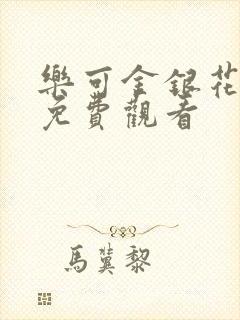 樂可金銀花
免費觀看
馬冀黎